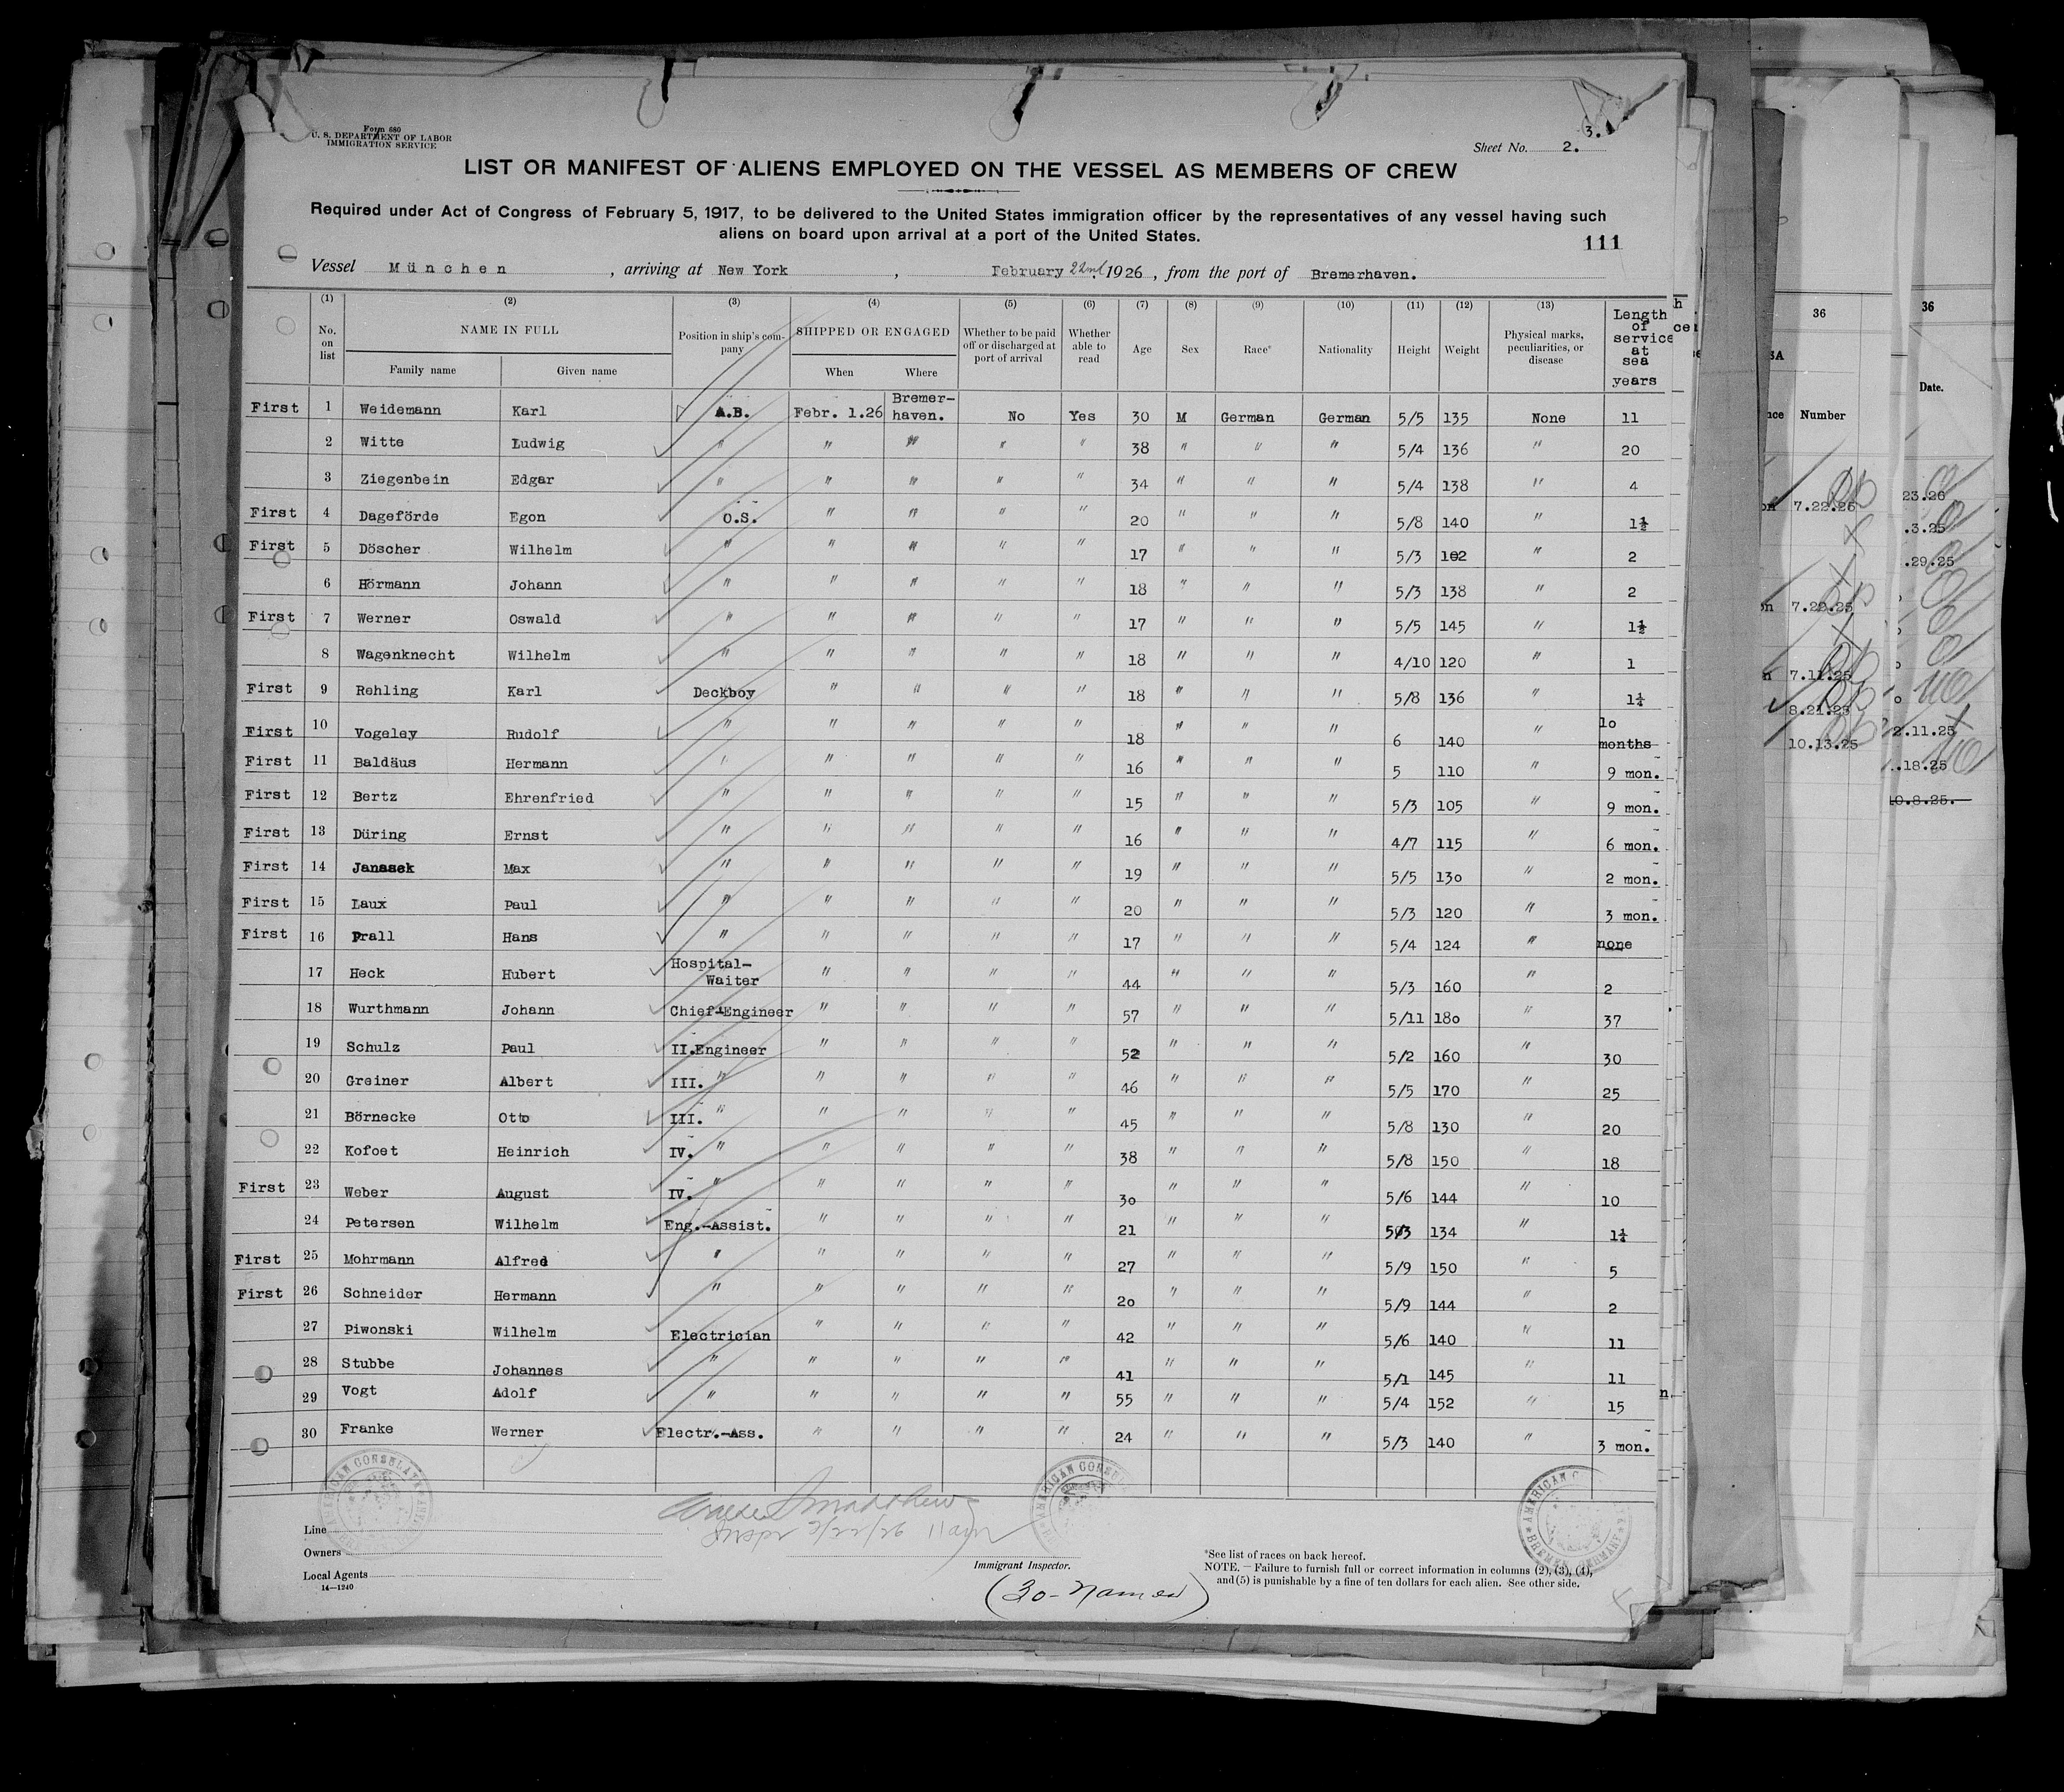 Form 680
U. S. DEPARTMENT OF LABOR
IMMIGRATION SERVICE
3.
Sheet No. 2.
LIST OR MANIFEST OF ALIENS EMPLOYED ON THE VESSEL AS MEMBERS OF CREW
Required under Act of Congress of February 5, 1917, to be delivered to the United States immigration officer by the representatives of any vessel having such
aliens on board upon arrival at a port of the United States.
111
Vessel München, arriving at New York, February 22nd, 1926, from the port of Bremerhaven.
(1) (2) (3) (4) (5) (6) (7) (8) (9) (10) (11) (12) (13)
No. on list NAME IN FULL Family name Given name Position in ship's company SHIPPED OR ENGAGED When Where Whether to be paid off or discharged at port of arrival Whether able to read Age Sex Race* Nationality Height Weight Physical marks, peculiarities, or disease Length of service at sea years
First 1 Weidemann Karl A.B. Febr. 1.26 Bremerhaven. No Yes 30 M German German 5/5 135 None 11
2 Witte Ludwig " " " " " 38 " " " 5/4 136 " 20
3 Ziegenbein Edgar " " " " " 34 " " " 5/4 138 " 4
First 4 Dageförde Egon O.S. " " " " 20 " " " 5/8 140 " 1½
First 5 Döscher Wilhelm " " " " " 17 " " " 5/3 102 " 2
6 Hörmann Johann " " " " " 18 " " " 5/3 138 " 2
First 7 Werner Oswald " " " " " 17 " " " 5/5 145 " 1½
8 Wagenknecht Wilhelm " " " " " 18 " " " 4/10 120 " 1
First 9 Rehling Karl Deckboy " " " " 18 " " " 5/8 136 " 1¼
First 10 Vogeley Rudolf " " " " " 18 " " " 6 140 " 10 months
First 11 Baldäus Hermann " " " " " 16 " " " 5 110 " 9 mon.
First 12 Bertz Ehrenfried " " " " " 15 " " " 5/3 105 " 9 mon.
First 13 Düring Ernst " " " " " 16 " " " 4/7 115 " 6 mon.
First 14 Janasek Max " " " " " 19 " " " 5/5 130 " 2 mon.
First 15 Laux Paul " " " " " 20 " " " 5/3 120 " 3 mon.
First 16 Prall Hans " " " " " 17 " " " 5/4 124 " none
17 Heck Hubert Hospital-Waiter " " " " 44 " " " 5/3 160 " 2
18 Wurthmann Johann Chief-Engineer " " " " 57 " " " 5/11 180 " 37
19 Schulz Paul II.Engineer " " " " 52 " " " 5/2 160 " 30
20 Greiner Albert III. " " " " " 46 " " " 5/5 170 " 25
21 Börnecke Otto III. " " " " " 45 " " " 5/8 130 " 20
22 Kofoet Heinrich IV. " " " " " 38 " " " 5/8 150 " 18
First 23 Weber August IV. " " " " " 30 " " " 5/6 144 " 10
24 Petersen Wilhelm Eng.-Assist. " " " " 21 " " " 5/3 134 " 1¼
First 25 Mohrmann Alfred " " " " " 27 " " " 5/9 150 " 5
First 26 Schneider Hermann " " " " " 20 " " " 5/9 144 " 2
27 Piwonski Wilhelm Electrician " " " " 42 " " " 5/6 140 " 11
28 Stubbe Johannes " " " " " 41 " " " 5/1 145 " 11
29 Vogt Adolf " " " " " 55 " " " 5/4 152 " 15
30 Franke Werner Electr.-Ass. " " " " 24 " " " 5/3 140 " 3 mon.
AMERICAN CONSULATE
AMERICAN CONSUL
AMERICAN C
BREMEN, GERMANY
Line
Owners
Local Agents
14—1240
Immigrant Inspector.
(30-Names)
*See list of races on back hereof.
NOTE.—Failure to furnish full or correct information in columns (2), (3), (4),
and (5) is punishable by a fine of ten dollars for each alien. See other side.
36
3A
Number
7.22.26
7.22.25
7.11.25
8.21.23
10.13.25
36
Date.
23.26
.3.25
.29.25
2.11.25
.18.25
10.8.25.